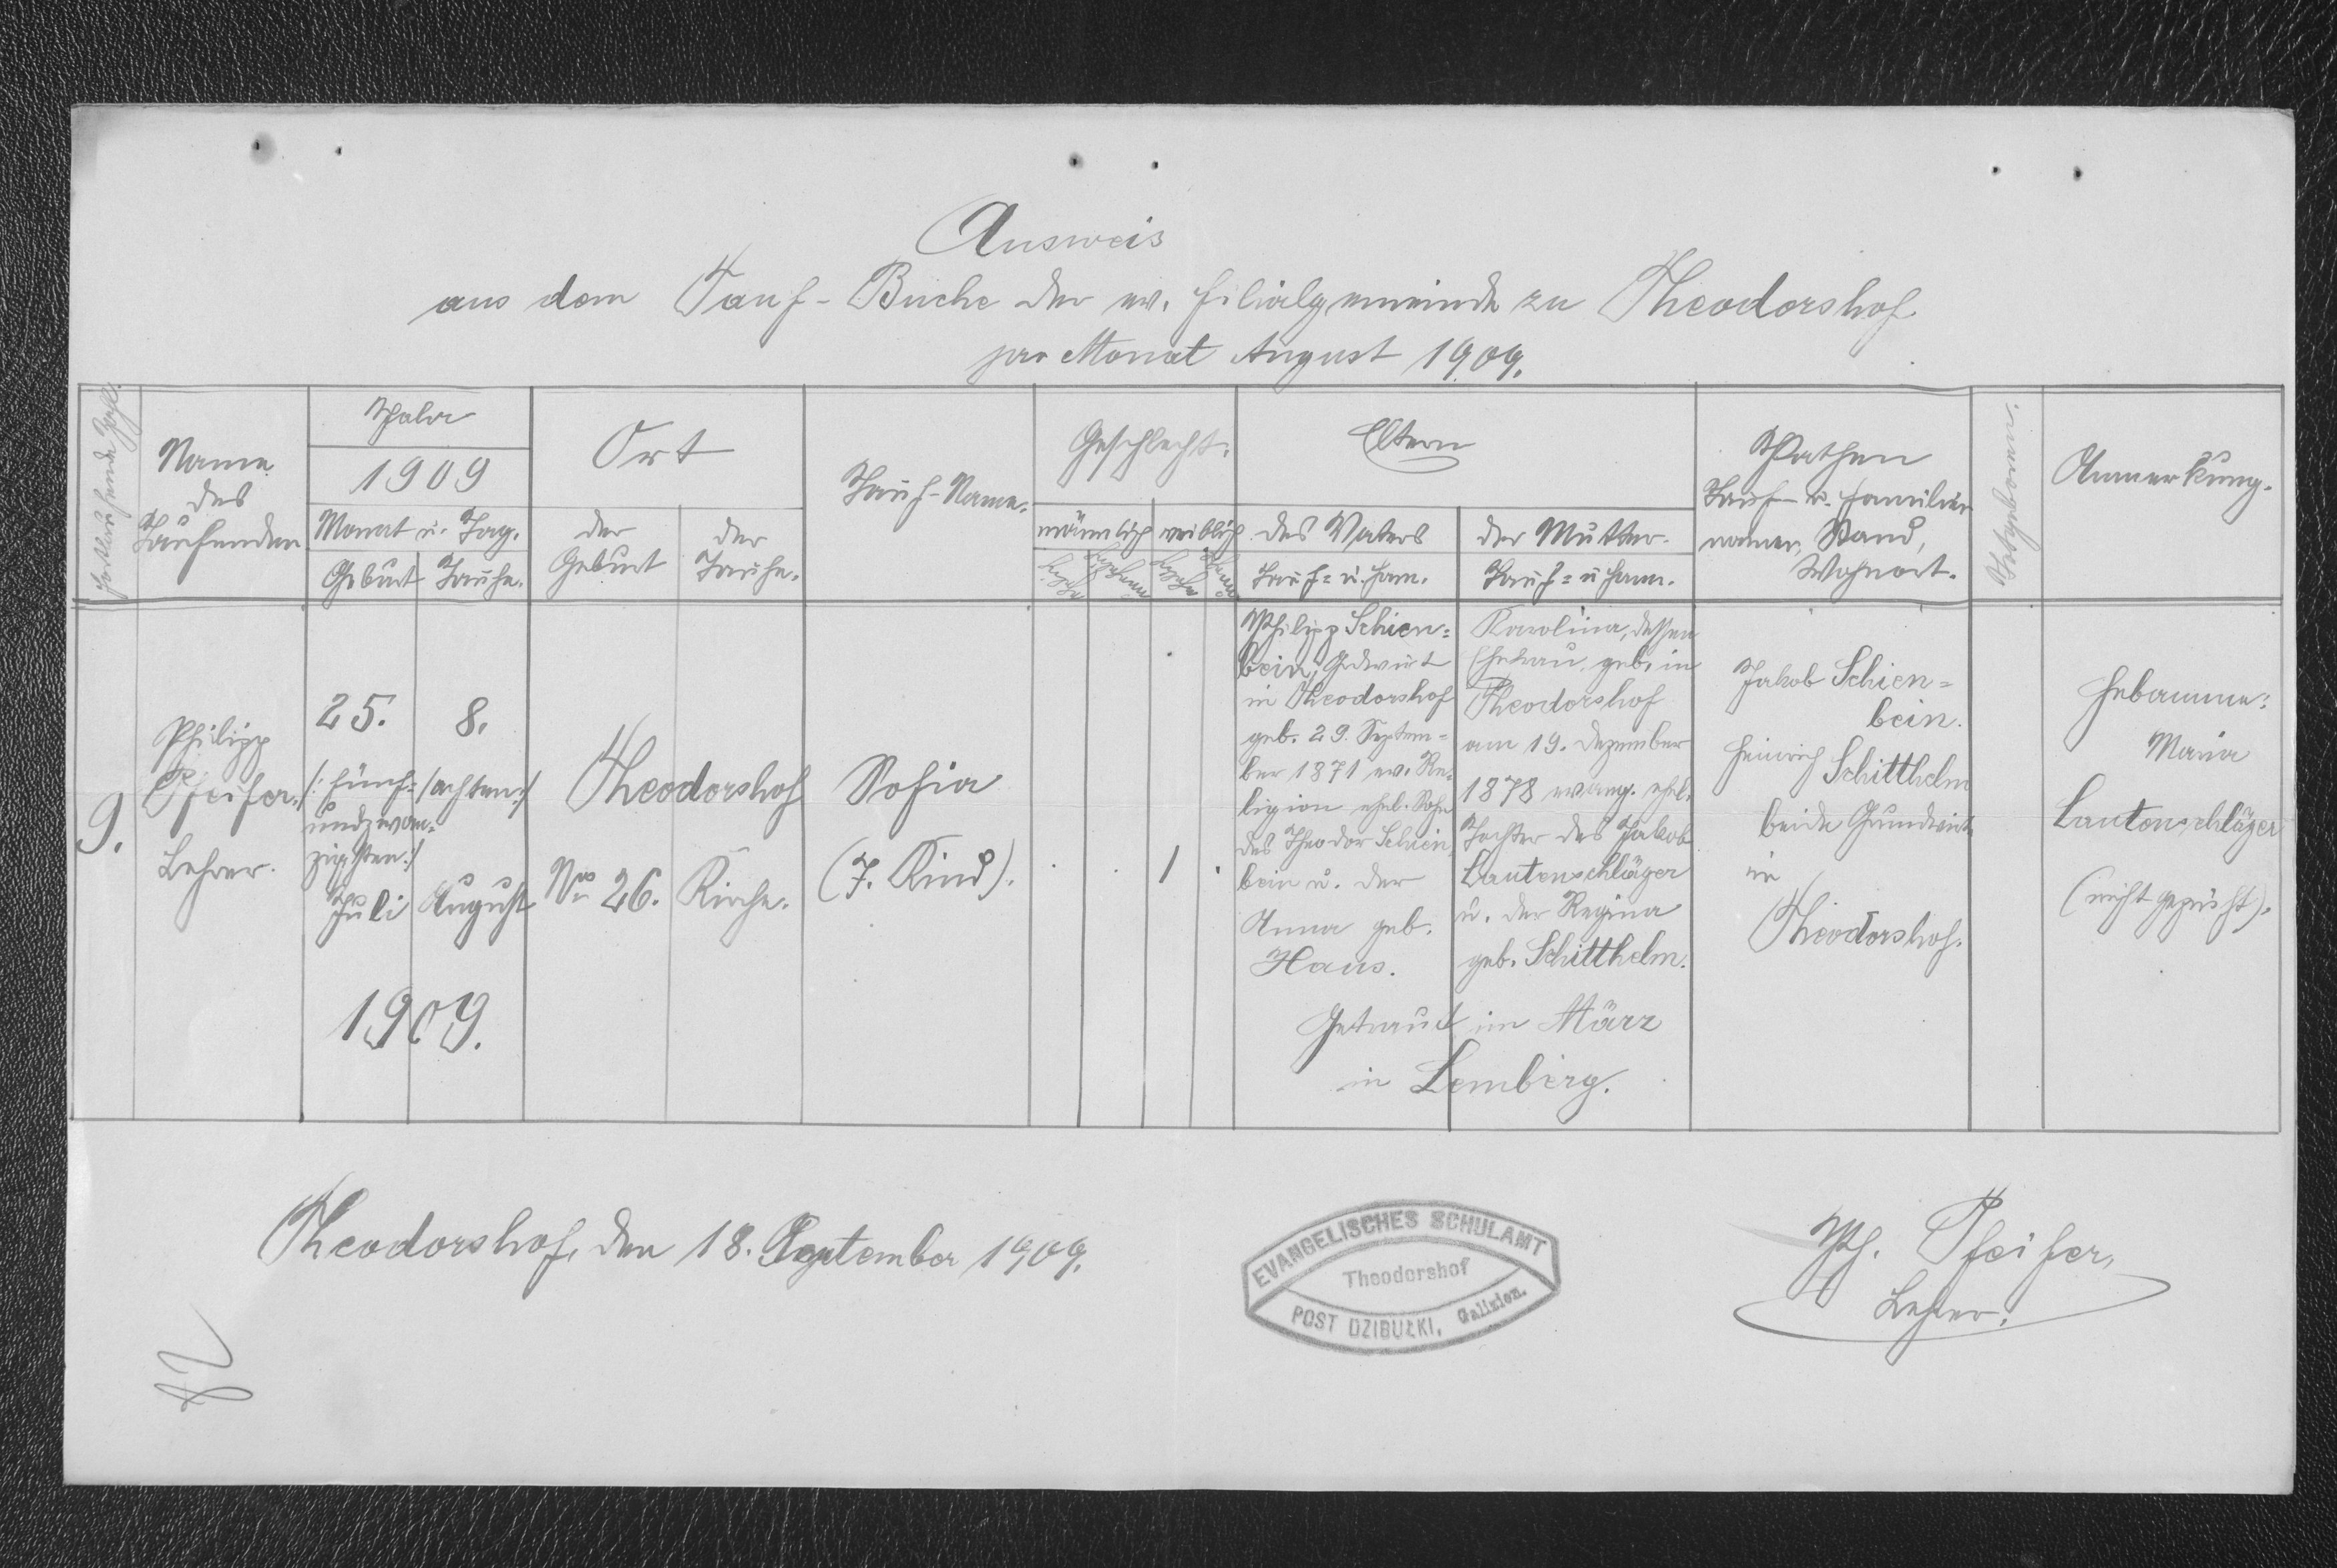 Ausweis
aus dem Tauf-Buche der ev. Filialgemeinde zu Theodorshof
pro Monat August 1909.
Fortlaufende Zahl.
Name
des
Taufenden
Jahr
1909
Monat u. Tag.
Geburt
Taufe.
Ort
der
Geburt
der
Taufe.
Tauf-Name.
Geschlecht.
männlich
weiblich
Eltern
des Vaters
Tauf= u. Fam.
der Mutter.
Tauf= u Fam.
Pathen
Tauf- u. Familien
namen, Stand,
Wohnort.
Anmerkung.
9.
Philipp
Pfeifer
Lehrer.
25.
/: fünf=
undzwan=
zigsten :/
Juli
8.
/achten:/
August
1909.
Theodorshof
No 26.
Kirche.
Sofia
(7. Kind).
1
Philipp Schien=
bein, Grdwirt
in Theodorshof
geb. 29. Septem=
ber 1871 ev. Re=
ligion ehel. Sohn
des Theodor Schien
bein u. der
Anna geb.
Haus.
Karolina, dessen
Ehefrau, geb. in
Theodorshof
am 19. Dezember
1878 evang. ehel.
Tochter des Jakob
Lautenschläger
u. der Regina
geb. Schitthelm.
Getraut im März
in Lemberg.
Jakob Schien=
bein.
Heinrich
Schitthelm
beide Grundwirte
in
Theodorshof.
Hebamme:
Maria
Lautenschläger
(nicht geprüft).
Theodorshof, den 18. September 1909.
EVANGELISCHES SCHULAMT
Theodorshof
POST DZIBUŁKI, Galizien.
Ph. Pfeifer,
Lehrer.